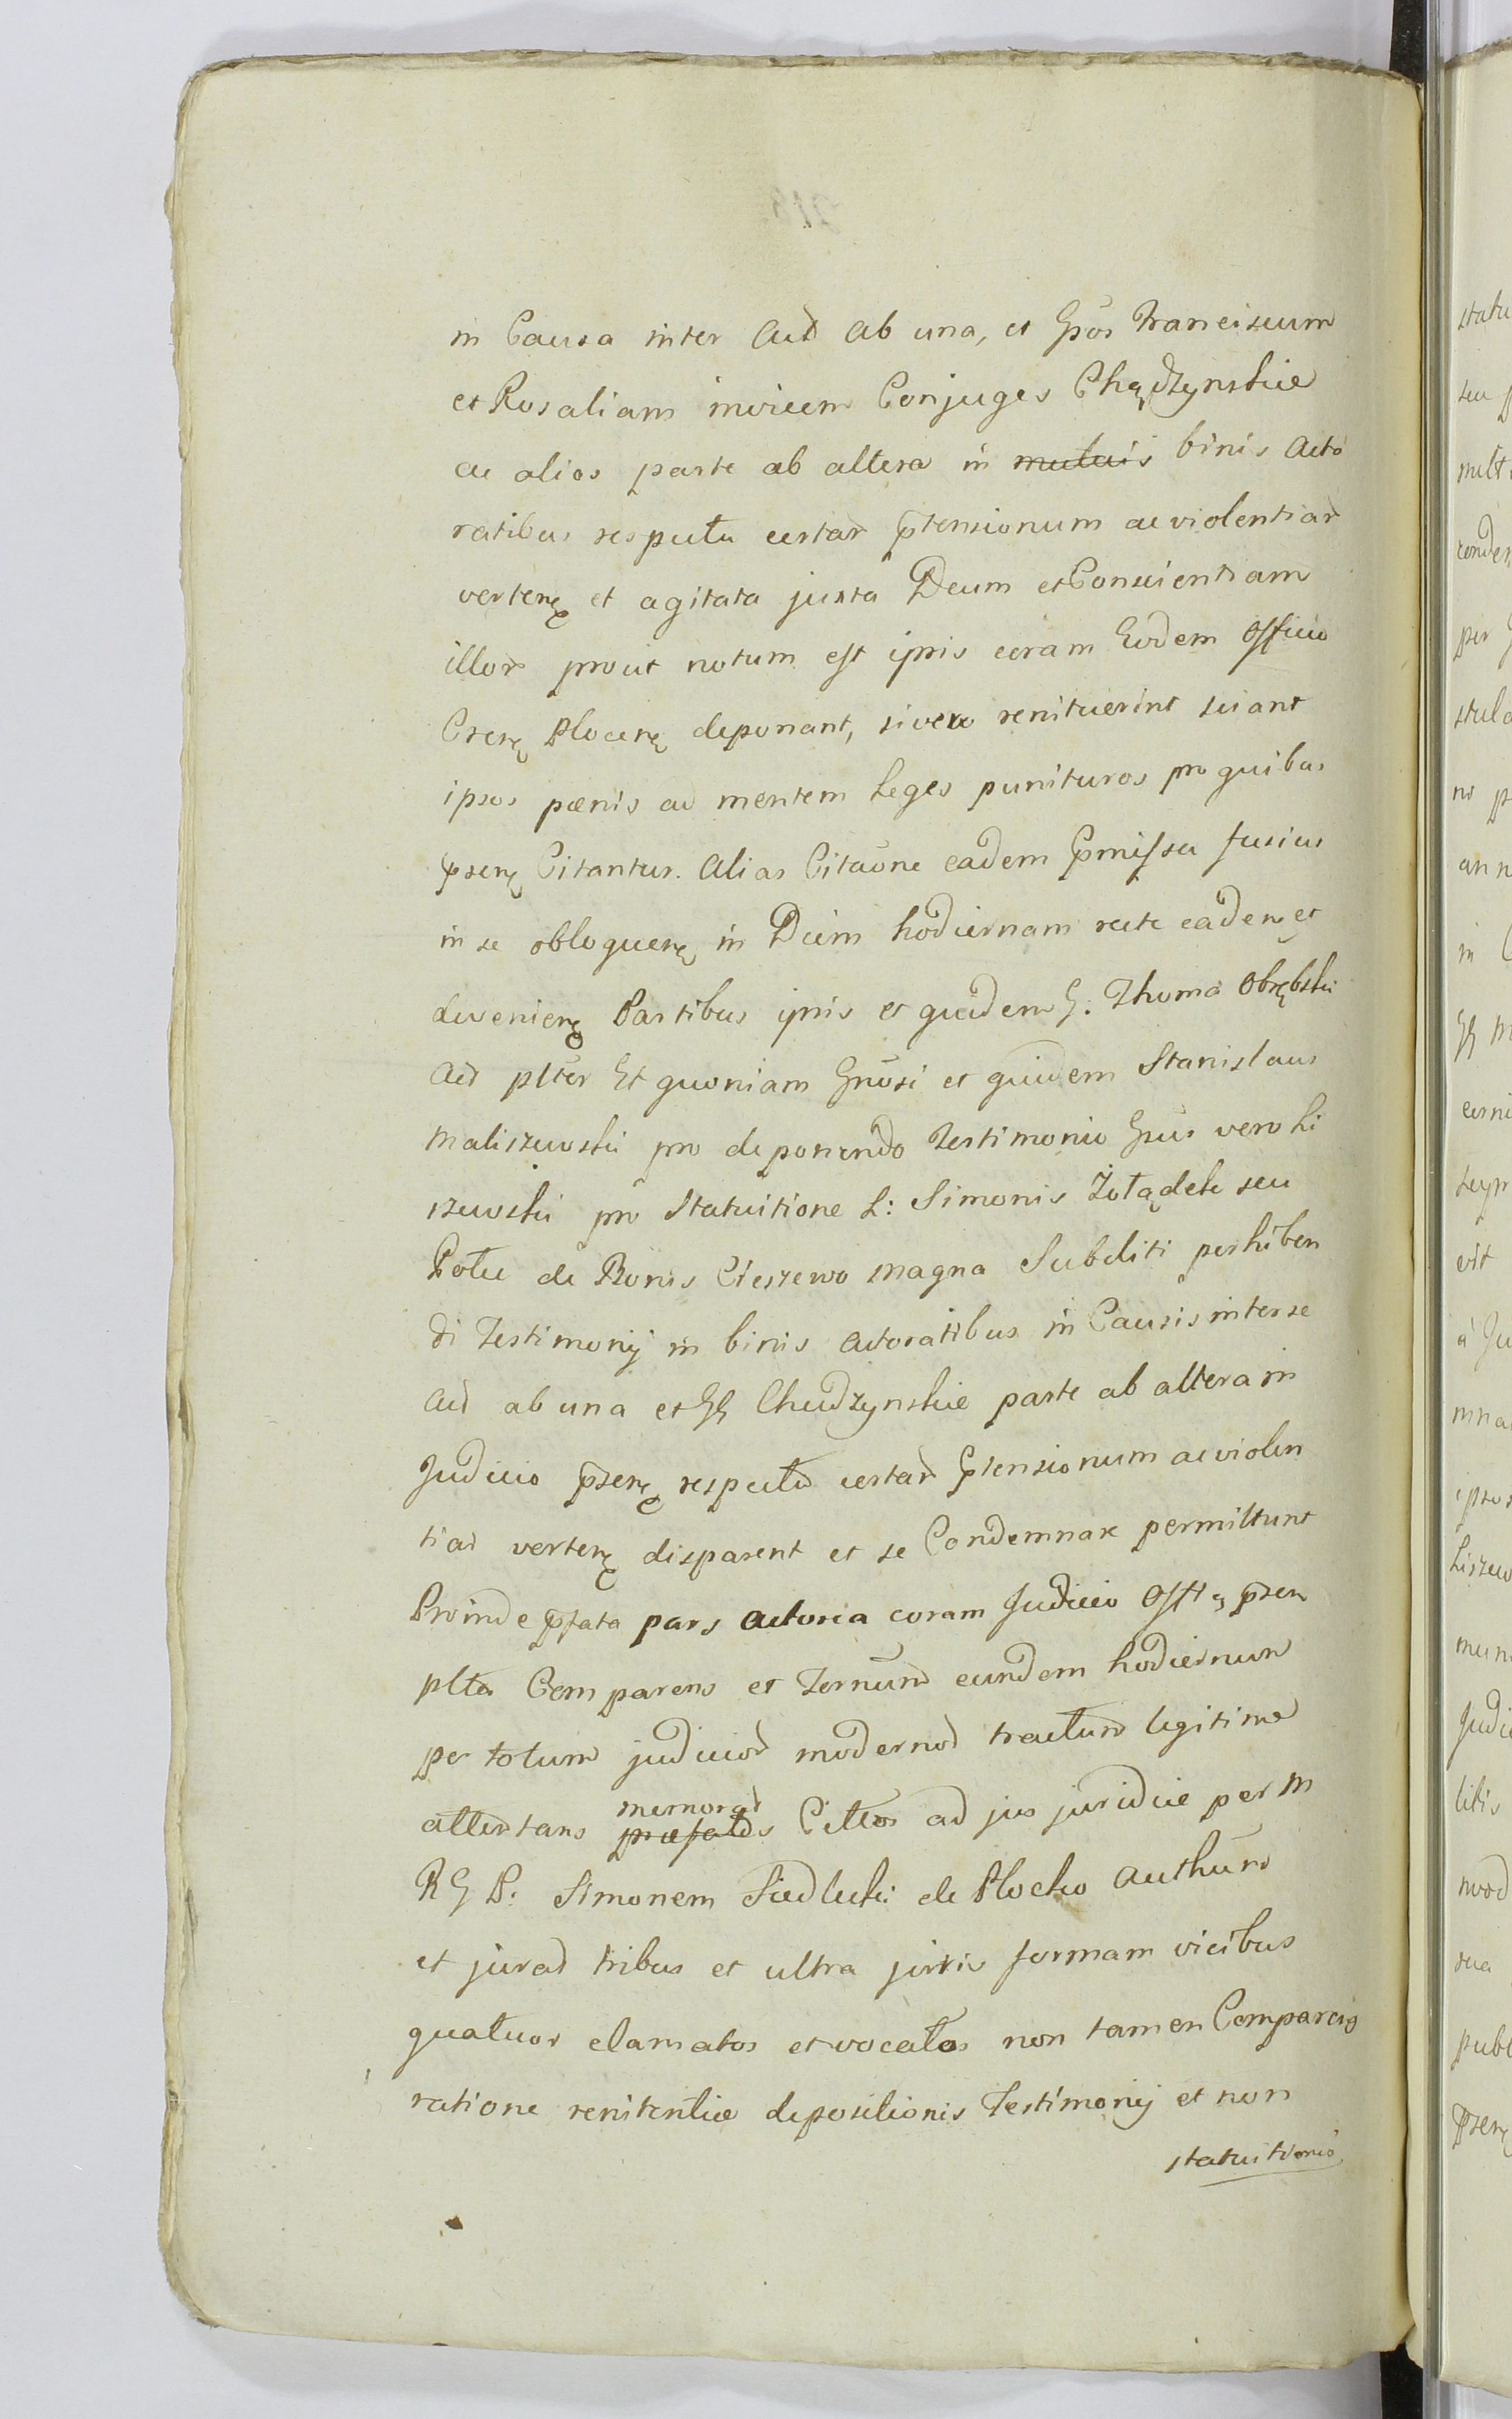 in Causa inter Act ab una, et Gsos Franciscum
et Rosaliam invicem Conjuges Chądzynskie
ac alios parte ab altera in mutuis binis Acto
ratibus respectu certar ptensionum ac violentiar
verten et agitata juxta Deum et Conscientiam
illor prout notum est ipsis coram Eodem Officio
Cren Plocen deponant, sivero renituerint sciant
ipsos pænis ad mentem Leges punituros pro quibus
psen Citantur. Alias Citaõne eadem pmissa fusius
in se obloquen in Diem hodiernam recte caden et
devenien Partibus ipsis et quidem G. Thoma Obrębski
Act plter Et quoniam Gnosi et quidem Stanislaus
Maliszewski pro deponendo Testimonio Gsus vero Li
szewski pro Statuitione L: Simonis Żołądek seu
de Bonis Cieszewo Magna Subditi perhiben
di Testimonij in binis Actoratibus in Causis inter se
Act ab una et GG Chudzynskie parte ab altera in
Judicio psen respectu certar ptensionum ac violen
tiar verten disparent et se Condemnare permittunt
Proinde pfata pars Actorea coram Judicio Offi psen
plter Comparens et Ternũm eundem hodiernum
per totum judicior modernor tractum legitime
attentans memorat
præfatos Cittos ad jus juridice per M
R G P: Simonem Siedlecki de Plocko Authũm
et jurat tribus et ultra juris formam vicibus
quatuor clamatos et vocatos non tamen Comparen
ratione renitentiæ depositionis Testimonij et non
statuitionis